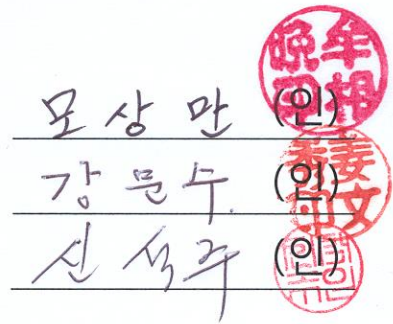 모상만 (인)
강문수 (인)
신석주 (인)